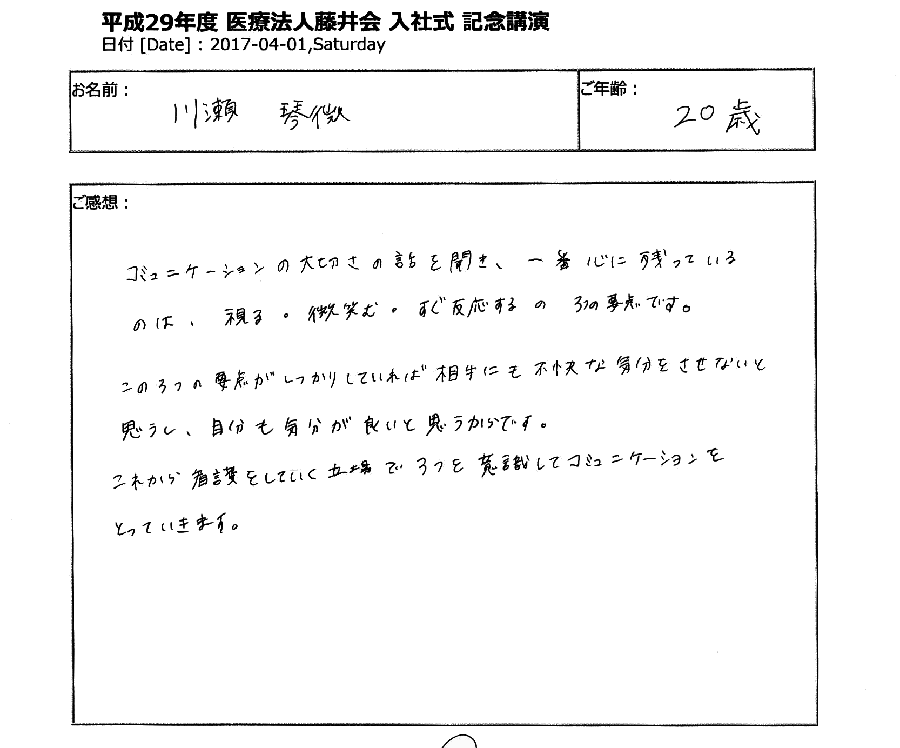 平成29年度 医療法人藤井会 入社式 記念講演
日付 [Date] : 2017-04-01,Saturday
お名前： 川瀬 琴微 ご年齢： 20歳
ご感想：
コミュニケーションの大切さの話を聞き、一番心に残っている
のは、視る・微笑む・すぐ反応するの3つの要点です。
この3つの要点がしっかりしていれば相手にも不快な気分をさせないと
思うし、自分も気分が良いと思うからです。
これから看護をしていく立場で3つを意識してコミュニケーションを
とっていきます。